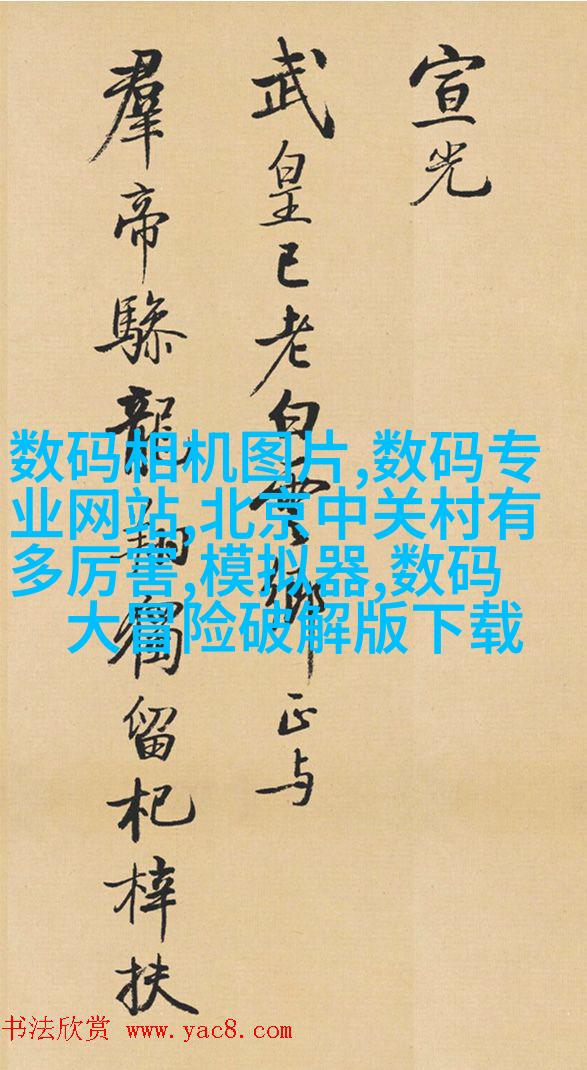 宣光
武皇已老白雲鄉正与
羣帝驂龍翔獨留杞梓扶
数码相机图片,数码专
业网站,北京中关村有
多厉害,模拟器,数码
大冒险破解版下载
书法欣赏 www.yac8.com